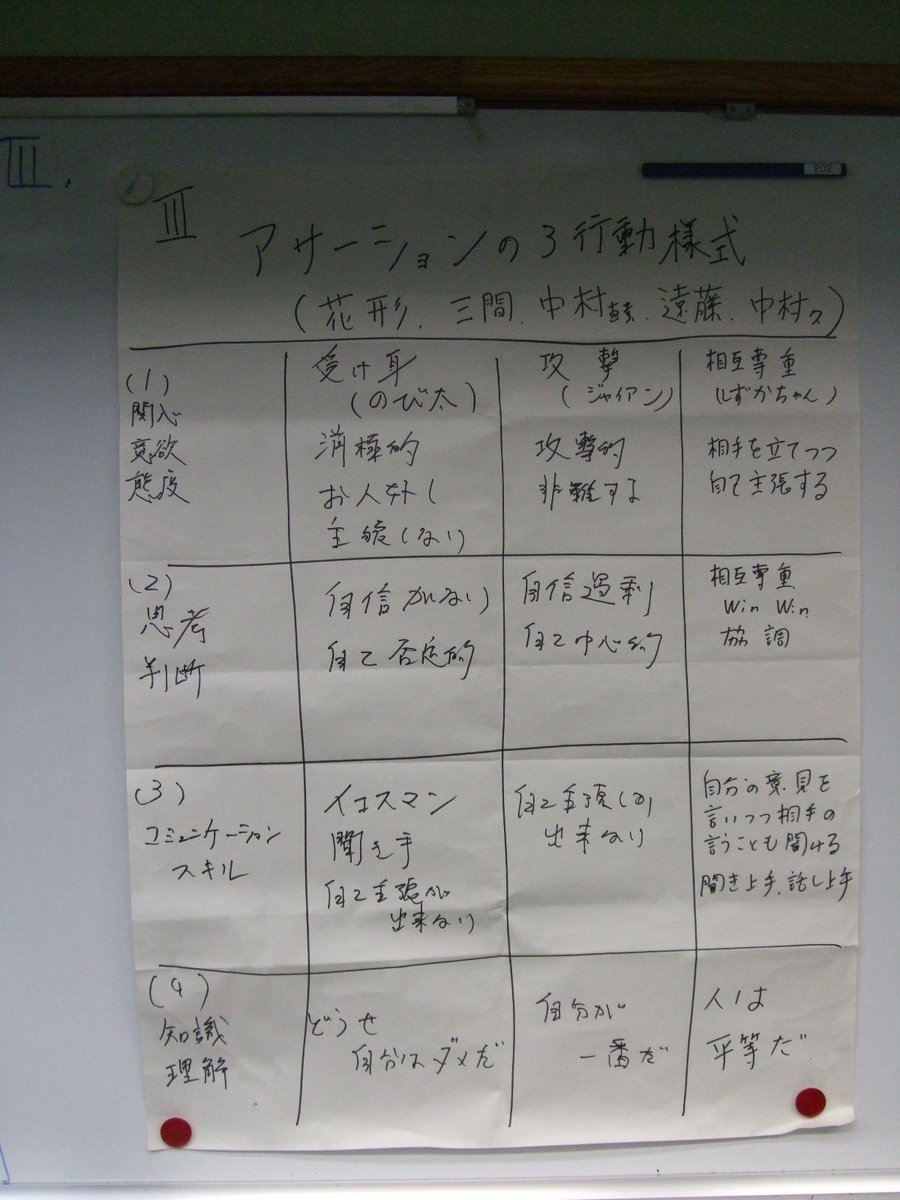 III.
202
III
アサーションの3行動様式
(花形、三間、中村、遠藤、中村久)
(1)
関心
意欲
態度
受け身
(のび太)
消極的
お人好し
主張しない
攻撃
(ジャイアン)
攻撃的
非難する
相互尊重
(しずかちゃん)
相手を立てつつ
自己主張する
(2)
思考
判断
自信がない
自己否定的
自信過剰
自己中心的
相互尊重
Win Win
協調
(3)
コミュニケーション
スキル
イエスマン
聞き手
自己主張が
出来ない
自己主張しか
出来ない
自分の意見を
言いつつ相手の
言うことも聞ける
聞き上手、話し上手
(4)
知識
理解
どうせ
自分はダメだ
自分が
一番だ
人は
平等だ